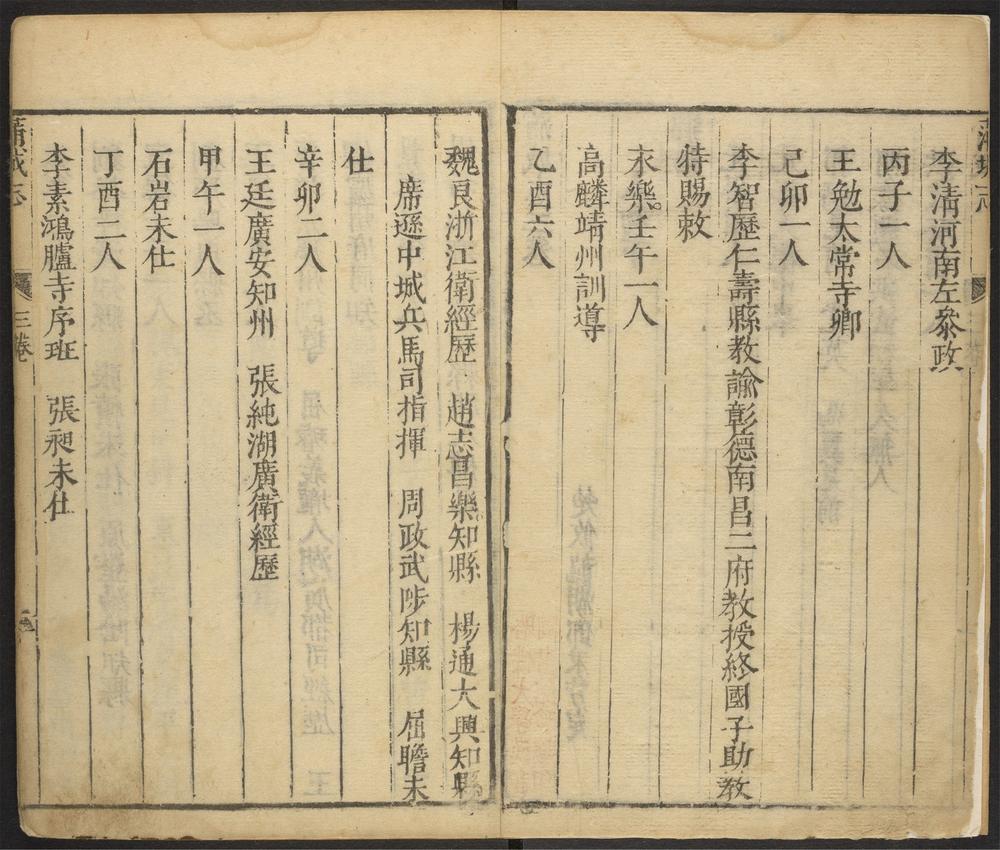 李淸河南左叅政
丙子一人
王勉太常寺卿
己卯一人
李智歷仁壽縣教諭彰德南昌二府教授終國子助教
特賜敕
永樂壬午一人
高麟靖州訓導
乙酉六人
魏艮浙江衛經歷 趙志昌樂知縣 楊通大興知縣
席遜中城兵馬司指揮 周政武陟知縣 屈瞻未
仕
辛卯二人
王廷廣安知州 張純湖廣衛經歷
甲午一人
石岩未仕
丁酉二人
李素鴻臚寺序班 張昶未仕
三卷